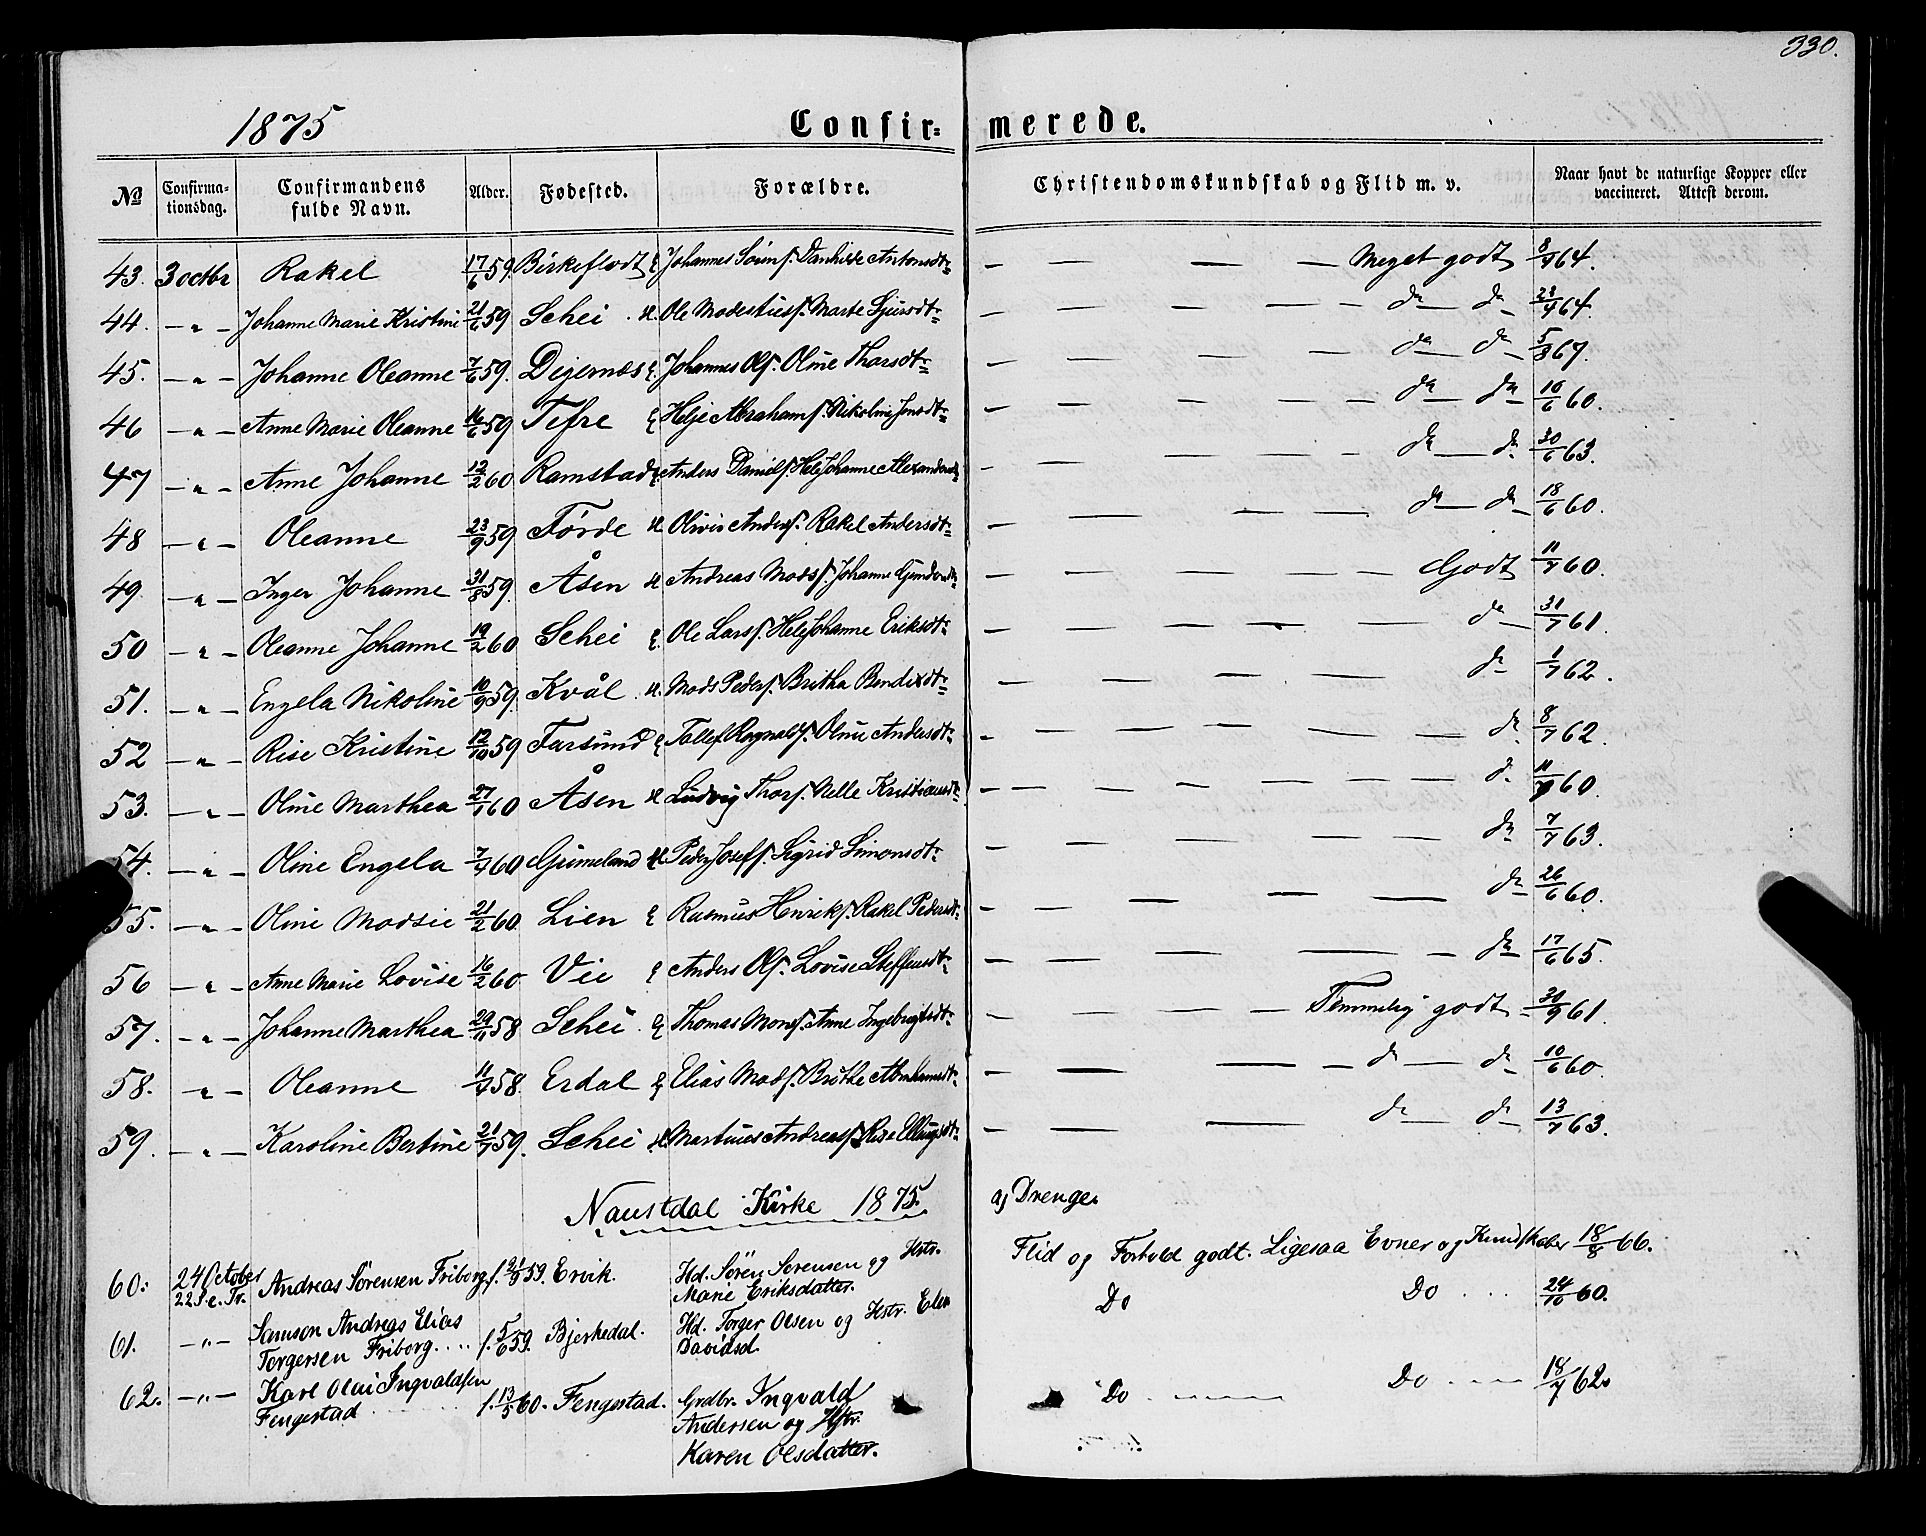 330.
1875 Confir= merede.
No Confirma-tionsdag. Confirmandens fulde Navn. Alder. Fødested. Forældre. Christendomskundskab og Flid m. v. Naar havt de naturlige Kopper eller vaccineret. Attest derom.
43. 3 octbr Rakel 17/6 59. Birkeflodt Johannes Danhilde Antonsdt: — — — — Meget godt 8/9 64.
44. — " — Johanne Marie Kristine 21/6 59 Schei Ole Modestus. Marte Sjursdt: — — — — — do — do 23/9 64.
45. — " — Johanne Oleanne 7/6 59. Degernæs Johannes Ols. Oline Thorsdt: — — — — do — do — 5/8 67.
46 — " — Anne Marie Oleanne 16/6 59 Tefre Helje Abrahams. Nikoline Jonsdt: — — — — — do — do — 10/6 60.
47 — " — Anne Johanne 12/2 60 Ramstad Anders Daniels. Johanne — — — — do — do 30/6 63.
48 — " — Oleanne 23/9 59 Førde Anders. Rakel Andersdt: — — — — do — do — 18/6 60.
49. — " — Inger Johanne 31/8 59. Åsen Andreas Mads. Johanne — — — — Godt 11/7 60.
50 — " — Oleanne Johanne 19/2 60 Schei Ole Lars. Johanne Eriksdt: — — — — do — 31/7 61.
51. — " — Engela Nikoline 10/9 59. Kvål Mads Peders. Britha Bendixdt: — — — — do 1/7 62.
52 — " — Rise Kristine 12/10 59 Farsund Tollef Ragnals. Oline Andersdt: — — — — — do 8/7 62.
53. — " — Oline Marthea 27/1 60 Åsen Ludvig Thors. Nelle Kristiansdt: — — — — — do 11/7 60.
54. — " — Oline Engela 7/4 60 Gjimeland Peder Josefs. Sigrid Simonsdt: — — — — do 7/7 63.
55. — " — Oline Madsie 21/2 60 Lien Rasmus Henriks. Rakel Pedersdt: — — — — do 26/6 60.
56 — " — Anne Marie Lovise 16/2 60 Vie Anders Ols. Lovise Steffensdt: — — — — — do 17/6 65.
57. — " — Johanne Marthea 29/11 58 Schei Thomas Mons. Anne Ingebrigtsdt: — — — — Temmelig godt 30/9 61.
58. — " — Oleanne 11/7 58. Erdal Elias Mads. Brithe Abrahamsdt: — — — — do — do 10/6 60.
59. — " — Karoline Bertine 21/7 59. Schei Martinus Andreas. Rise Ellingsdt: — — — do — do — 13/7 63.
Naustdal Kirke 1875. a) Drenge.
60. 24 October Andreas Sørensen Friborg f. 21/9 59. Ervik. Hd. Sören Sörensen og Hstr. Flid og Forhold godt. Ligesaa Evner og Kundskaber 18/8 66.
22 S. e. Tr. Marie Eriksdatter.
61. — " — Samson Andreas Elias f. 5/6 59. Bjerkedal. Hd. Torger Olsen og Hstr. Elen Do Do 24/10 60.
Torgersen Friborg.... Davidsd.
62. — " — Karl Olai Ingvaldsen f. 13/5 60. Fengestad. Grdbr. Ingvald Do Do 18/7 62.
Fengestad Andersen og Hstr.
Karen Olsdatter.